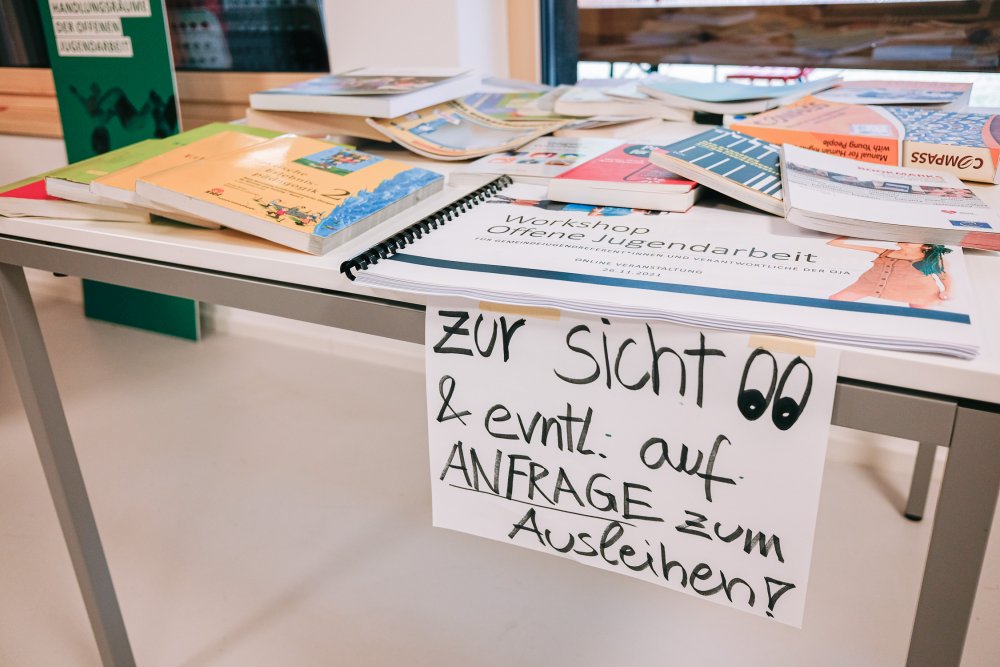 HANDLUNGSRÄUME
DER OFFENEN
JUGENDARBEIT
Manual for Human Rights
with Young People
COMPASS
BOOKMARKS
Workshop
Offene Jugendarbeit
FÜR GEMEINDEJUGENDREFERENT*INNEN UND VERANTWORTLICHE DER OJA
ONLINE VERANSTALTUNG
26.11.2021
zur Sicht
& evntl. auf
ANFRAGE zum
Ausleihen?